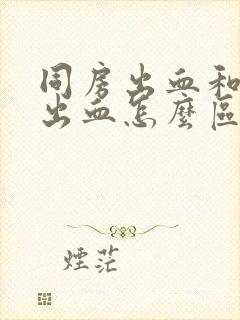 同房出血和
出血怎麼區
煙茫